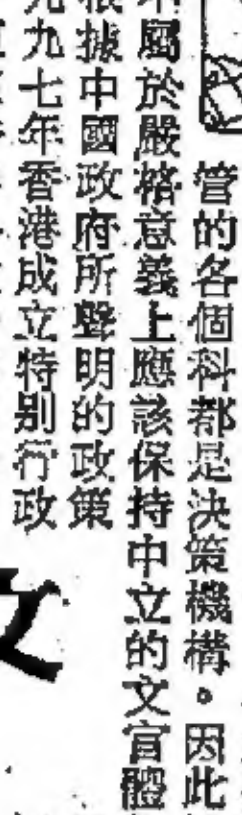 管的各個科都是決策機構。因此
屬於嚴格意義上應該保持中立的文官體
根據中國政府所聲明的政策
九七年香港成立特別行政
文